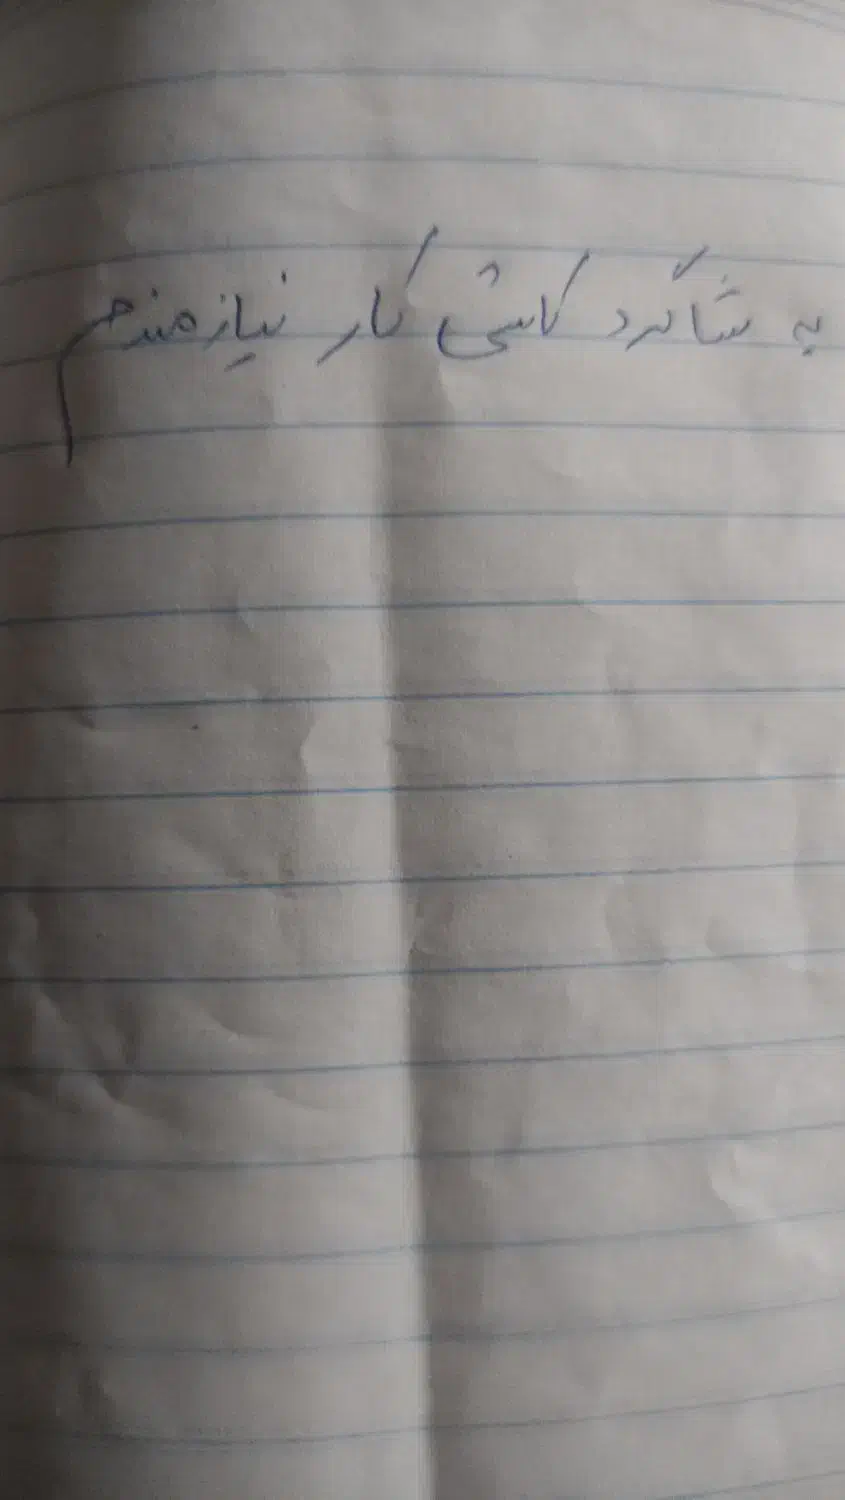 به شاگرد کاشی کار نیازمندیم